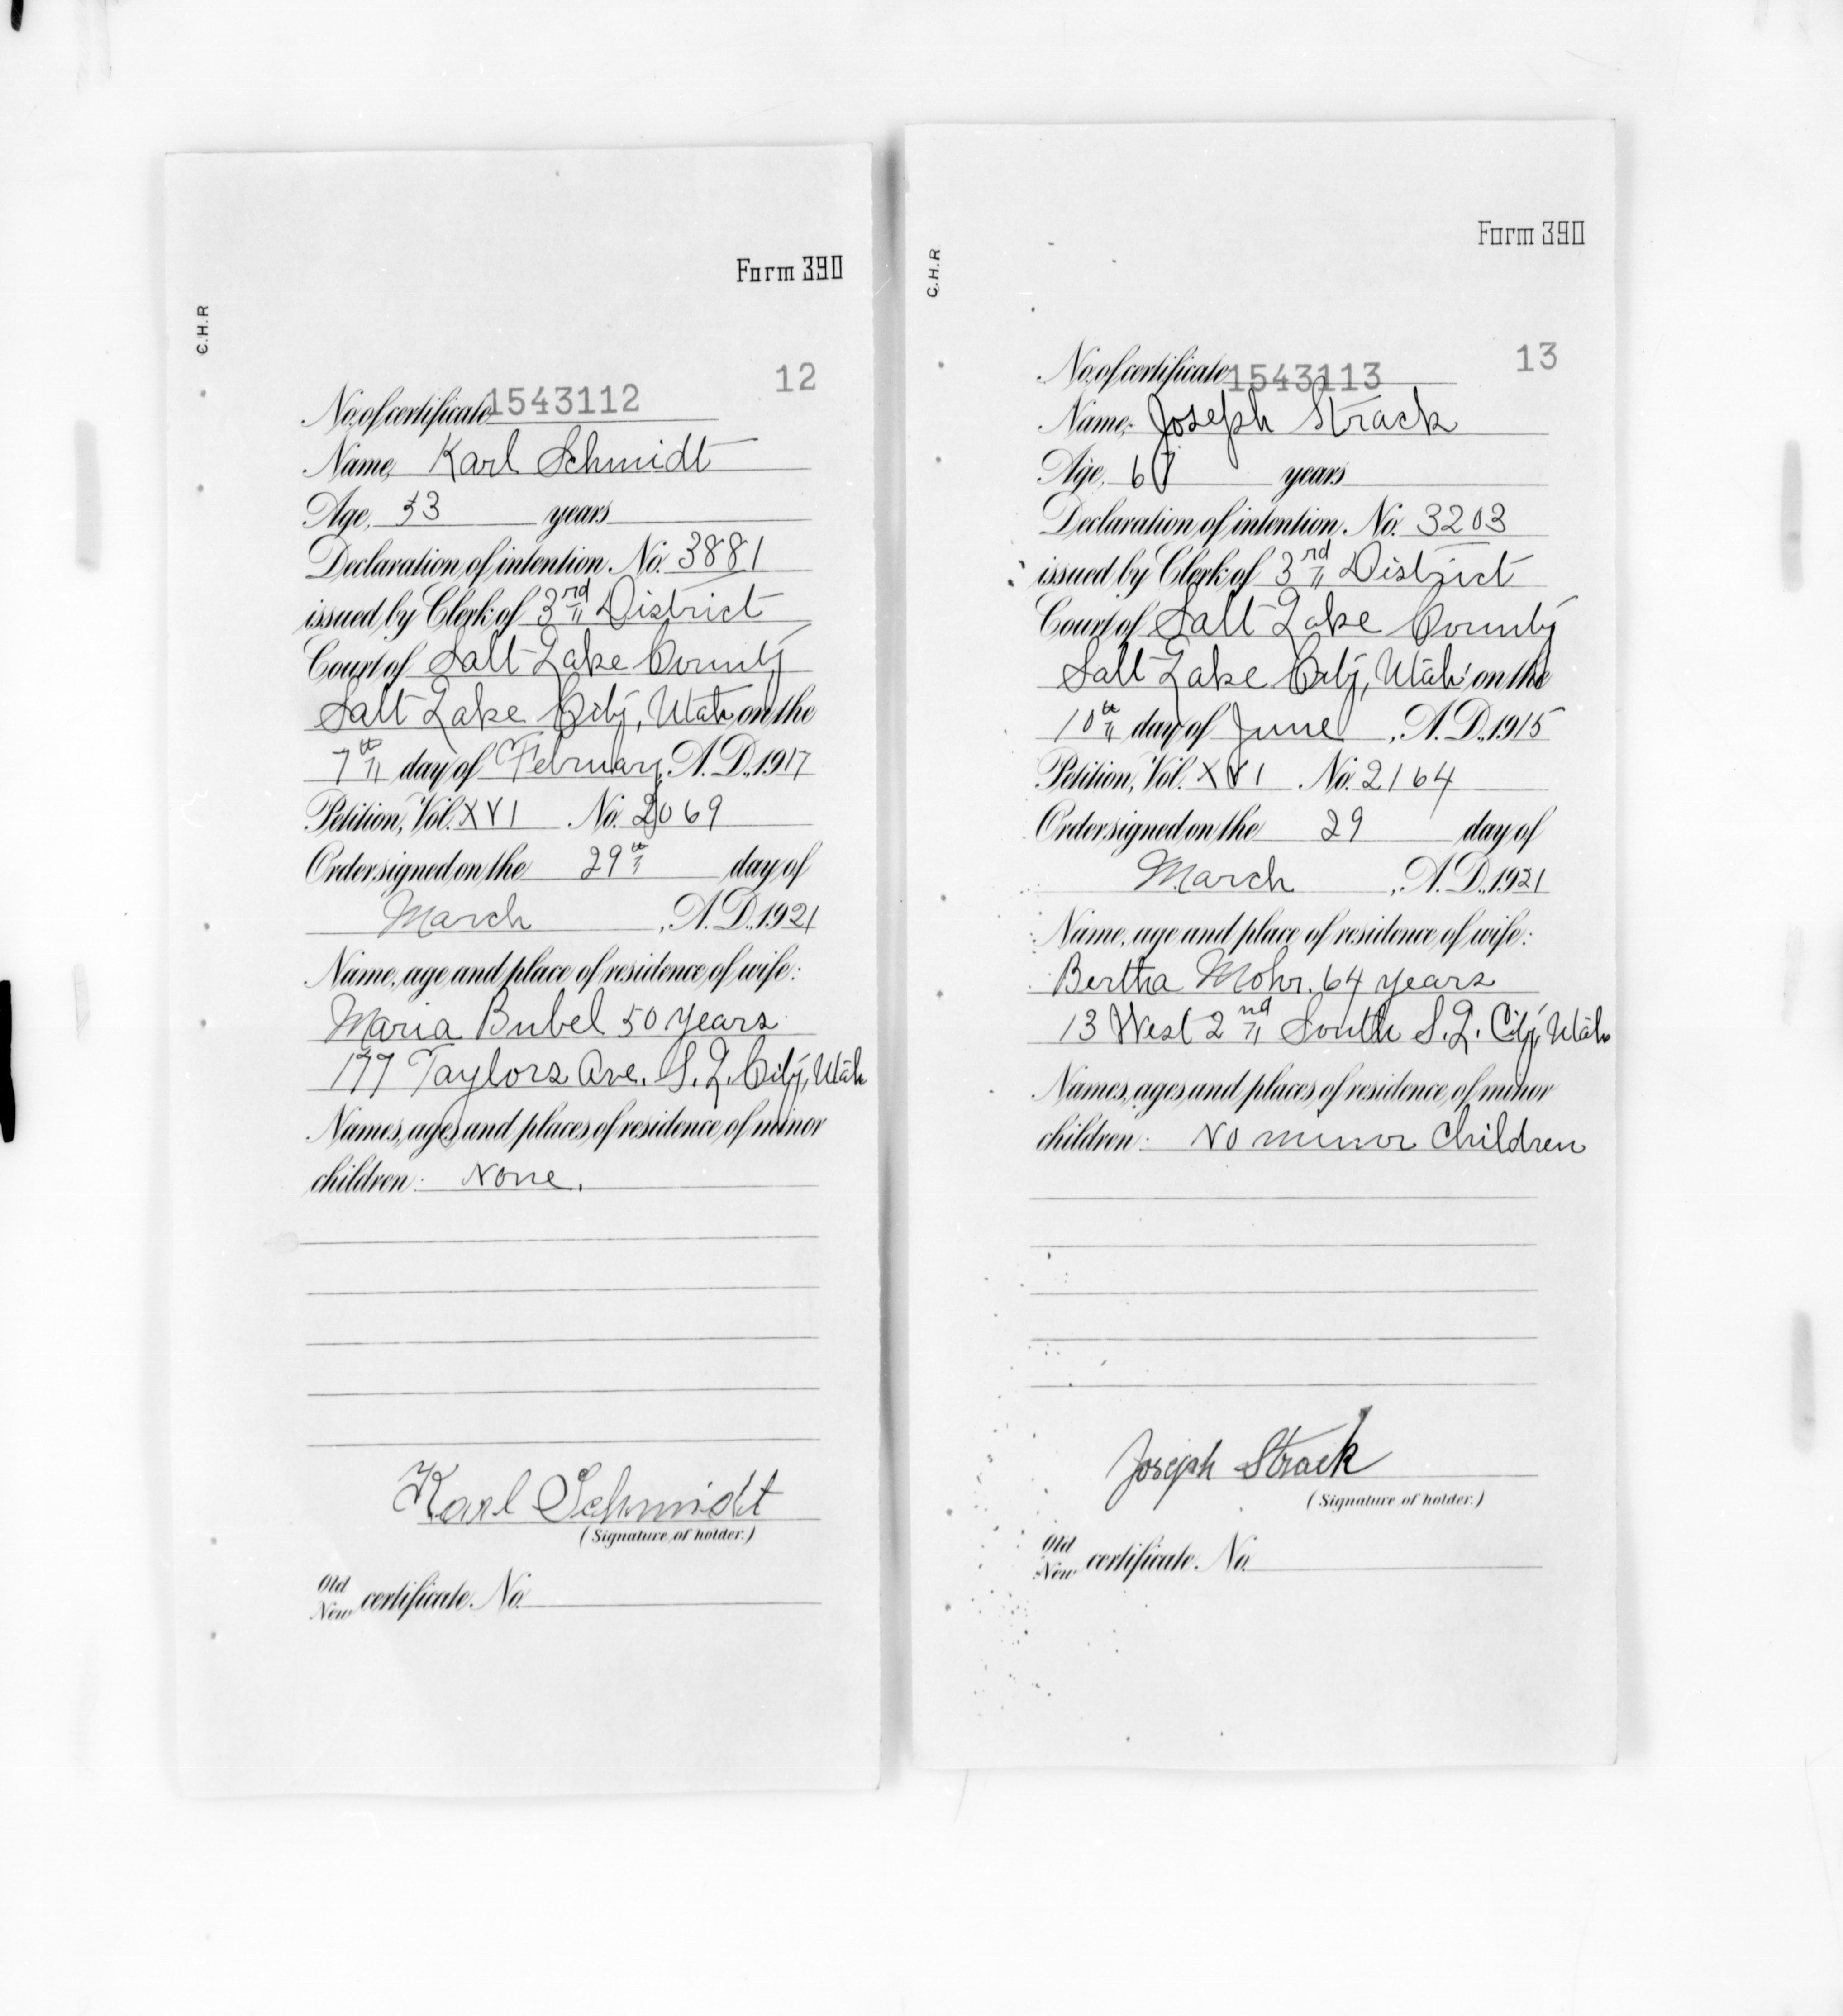 Form 390
C.H.R
12
No. of certificate 1543112
Name, Karl Schmidt
Age, 53 years
Declaration of intention, No. 3881
issued by Clerk of 3rd District
Court of Salt Lake County
Salt Lake City, Utah on the
7th day of February, A.D., 1917
Petition, Vol. XVI No. 2069
Order signed on the 29th day of
March, A.D., 1921
Name, age and place of residence of wife:
Maria Bubel 50 years
177 Taylors Ave. S. L. City, Utah
Names, ages and places of residence of minor
children: None.
Karl Schmidt
(Signature of holder.)
Old
New certificate No.
Form 390
C.H.R
13
No. of certificate 1543113
Name, Joseph Strack
Age, years
Declaration of intention, No. 3203
issued by Clerk of 3rd District
Court of Salt Lake County
Salt Lake City, Utah on the
10th day of June, A.D., 1915
Petition, Vol. XVI No. 2164
Order signed on the 29 day of
March, A.D., 1921
Name, age and place of residence of wife:
Bertha Mohr. 64 years
13 West 2nd South S. L. City, Utah
Names, ages and places of residence of minor
children: No minor Children
Joseph Strack
(Signature of holder.)
Old
New certificate No.